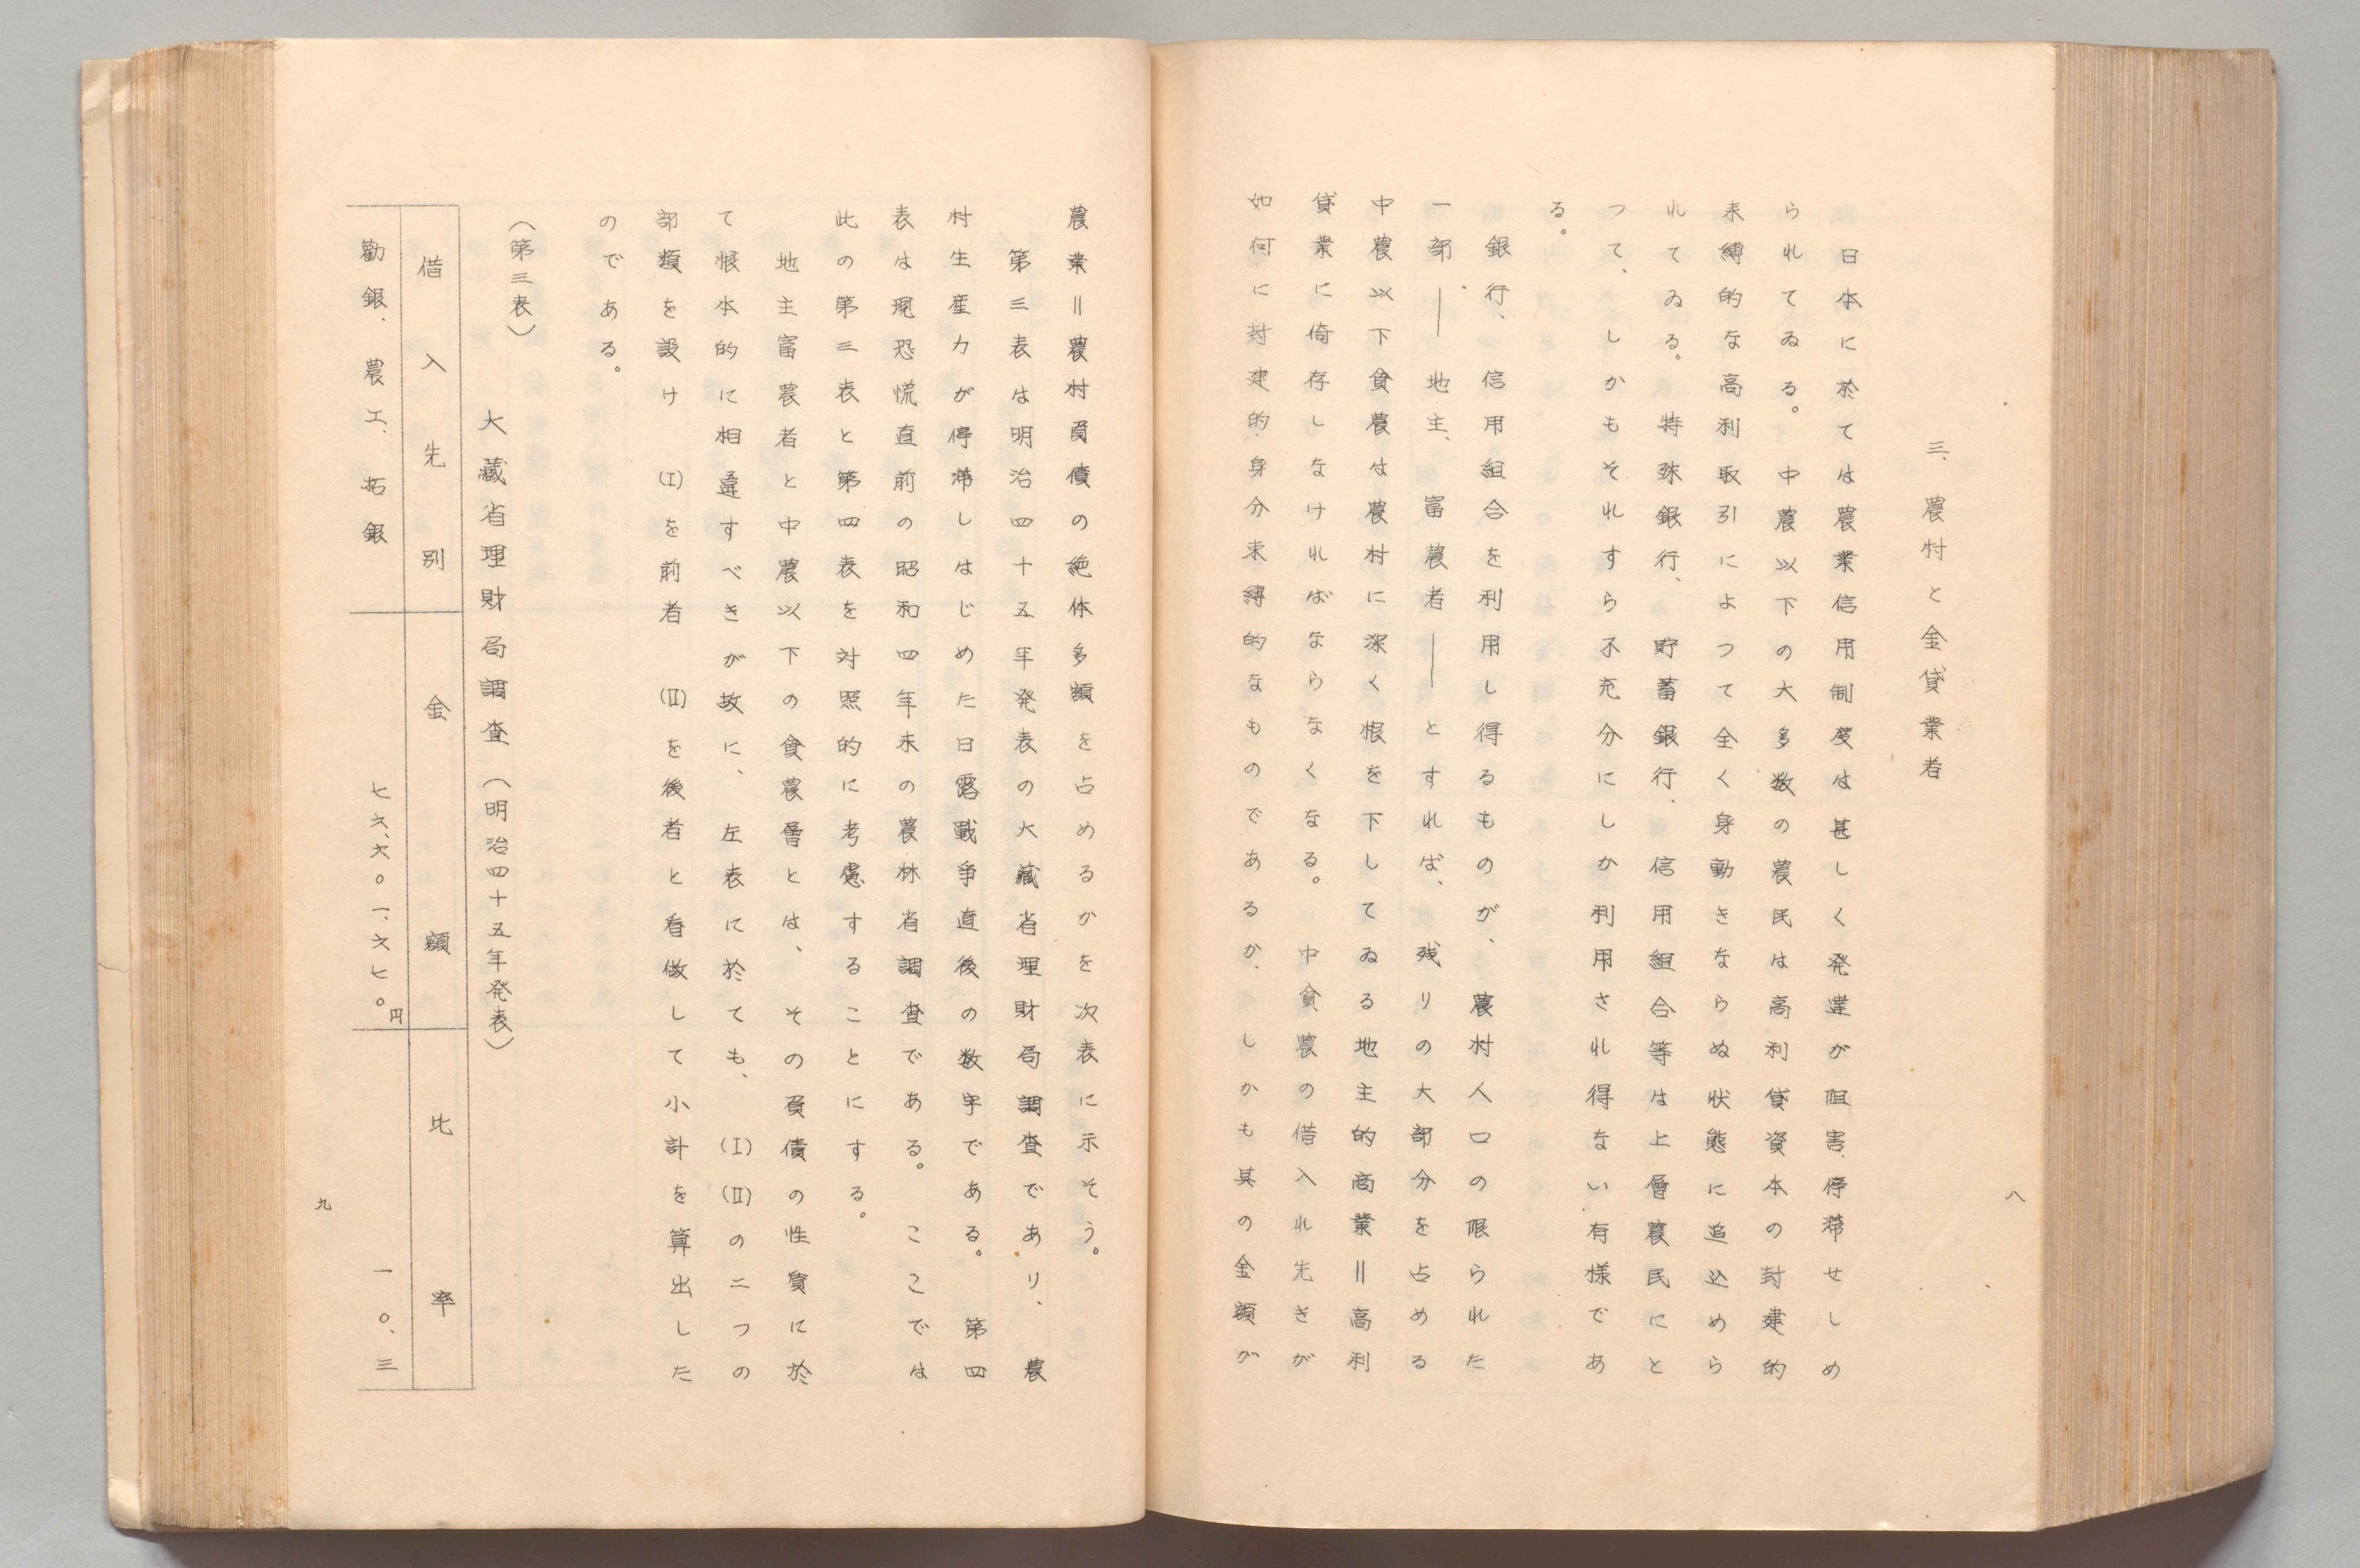 三、農村と金貸業者
日本に於ては農業信用制度は甚しく発達が阻害、停滞せしめ
られてゐる。中農以下の大多数の農民は高利貸資本の封建的
束縛的な高利取引によつて全く身動きならぬ状態に追込めら
れてゐる。特殊銀行、貯蓄銀行、信用組合等は上層農民にと
つて、しかもそれすら不充分にしか利用され得ない有様であ
る。
銀行、信用組合を利用し得るものが、農村人口の限られた
一部――地主、富農者――とすれば、残りの大部分を占める
中農以下貧農は農村に深く根を下してゐる地主的商業＝高利
貸業に倚存しなければならなくなる。中貧農の借入れ先きが
如何に封建的身分束縛的なものであるか、しかも其の金額が
八
農業＝農村負債の絶体多額を占めるかを次表に示そう。
第三表は明治四十五年発表の大藏省理財局調査であり、農
村生産力が停滞しはじめた日露戦争直後の数字である。第四
表は現恐慌直前の昭和四年末の農林省調査である。ここでは
此の第三表と第四表を対照的に考慮することにする。
地主富農者と中農以下の貧農層とは、その負債の性質に於
て根本的に相違すべきが故に、左表に於ても、(I)(II)の二つの
部類を設け(I)を前者(II)を後者と看做して小計を算出した
のである。
(第三表)
大藏省理財局調査(明治四十五年発表)
借入先別 金額 比率
勸銀、農工、拓銀 七六、六〇一、六七〇円 一〇、三
九